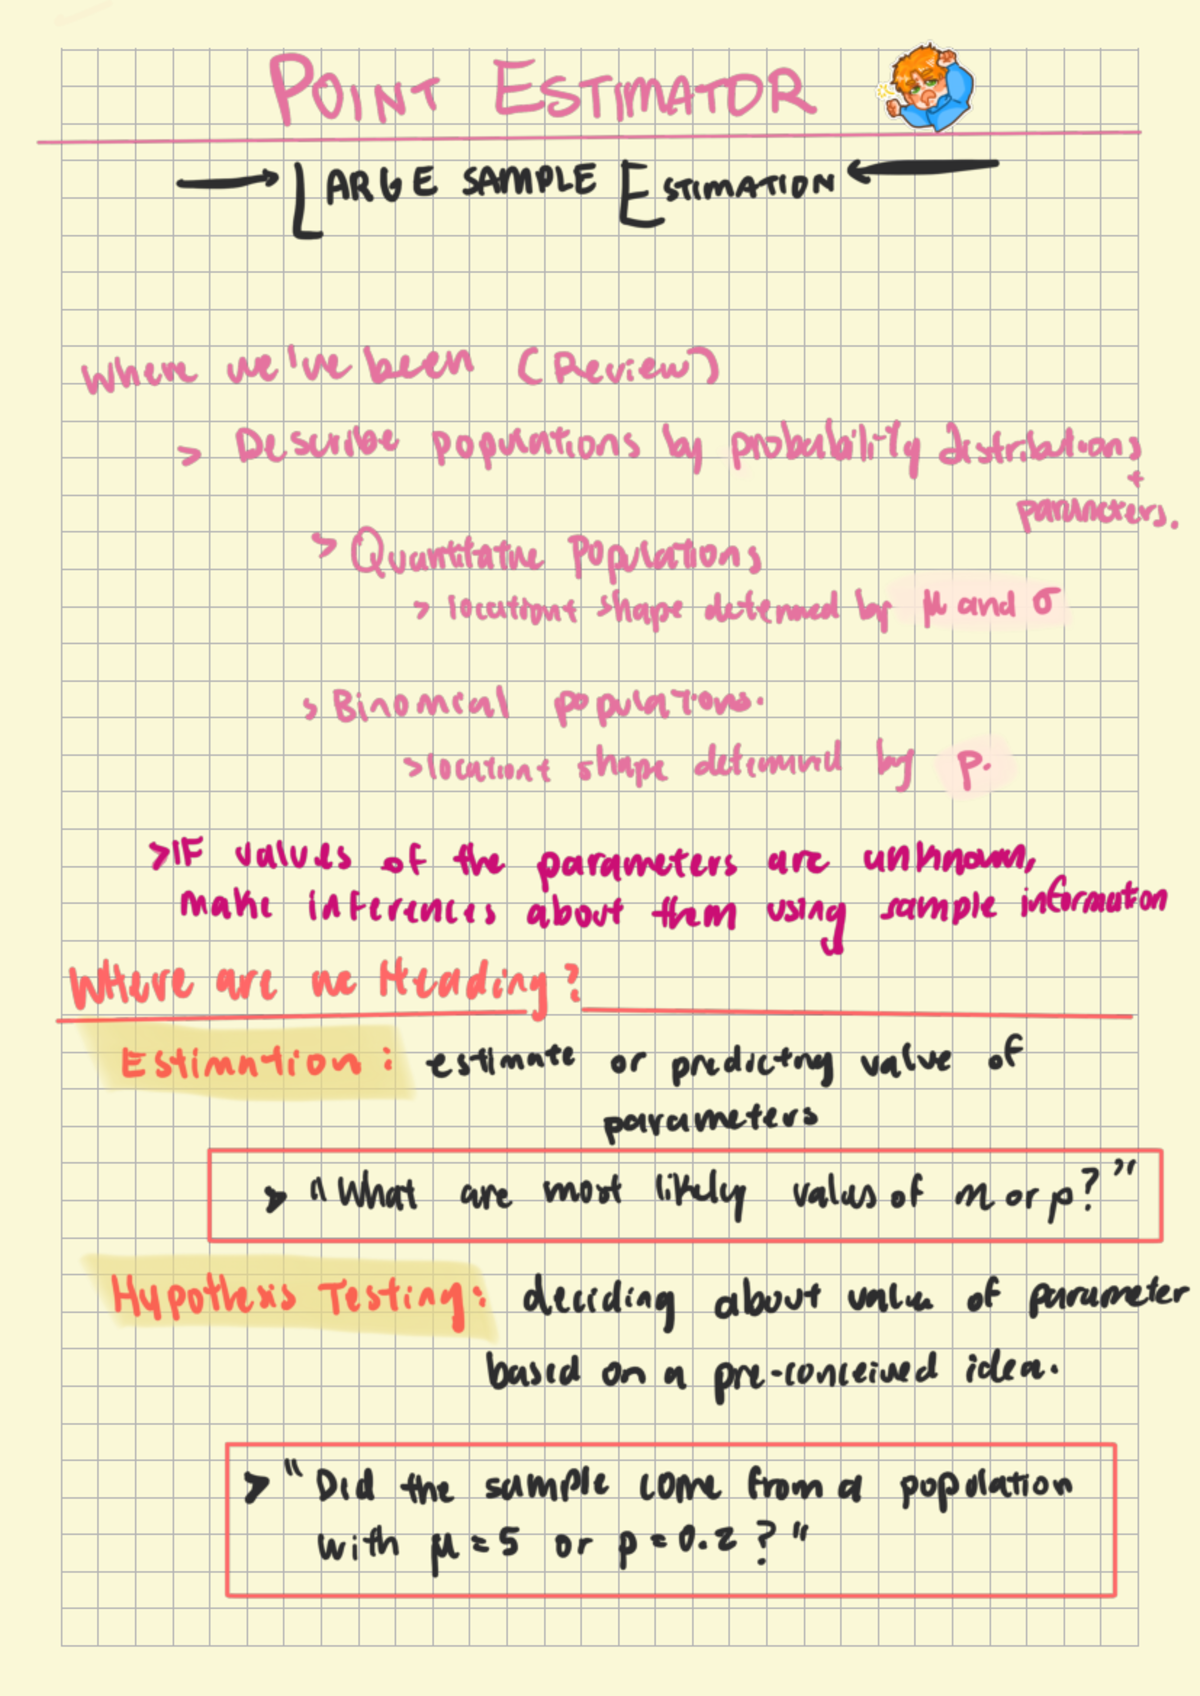 POINT ESTIMATOR
→ LARGE SAMPLE ESTIMATION ←
Where we've been (Review)
> Describe populations by probability distributions
+
parameters.
> Quantitative Populations
> location+ shape determed by μ and σ
> Binomial populations.
> location+ shape determined by p.
> IF values of the parameters are unknown,
make inferences about them using sample information
Where are we Heading?
Estimation: estimate or predicting value of
parameters
> "What are most likely values of m or p?"
Hypothesis Testing: deciding about value of parameter
based on a pre-conceived idea.
> "Did the sample come from a population
with μ = 5 or p = 0.2?"